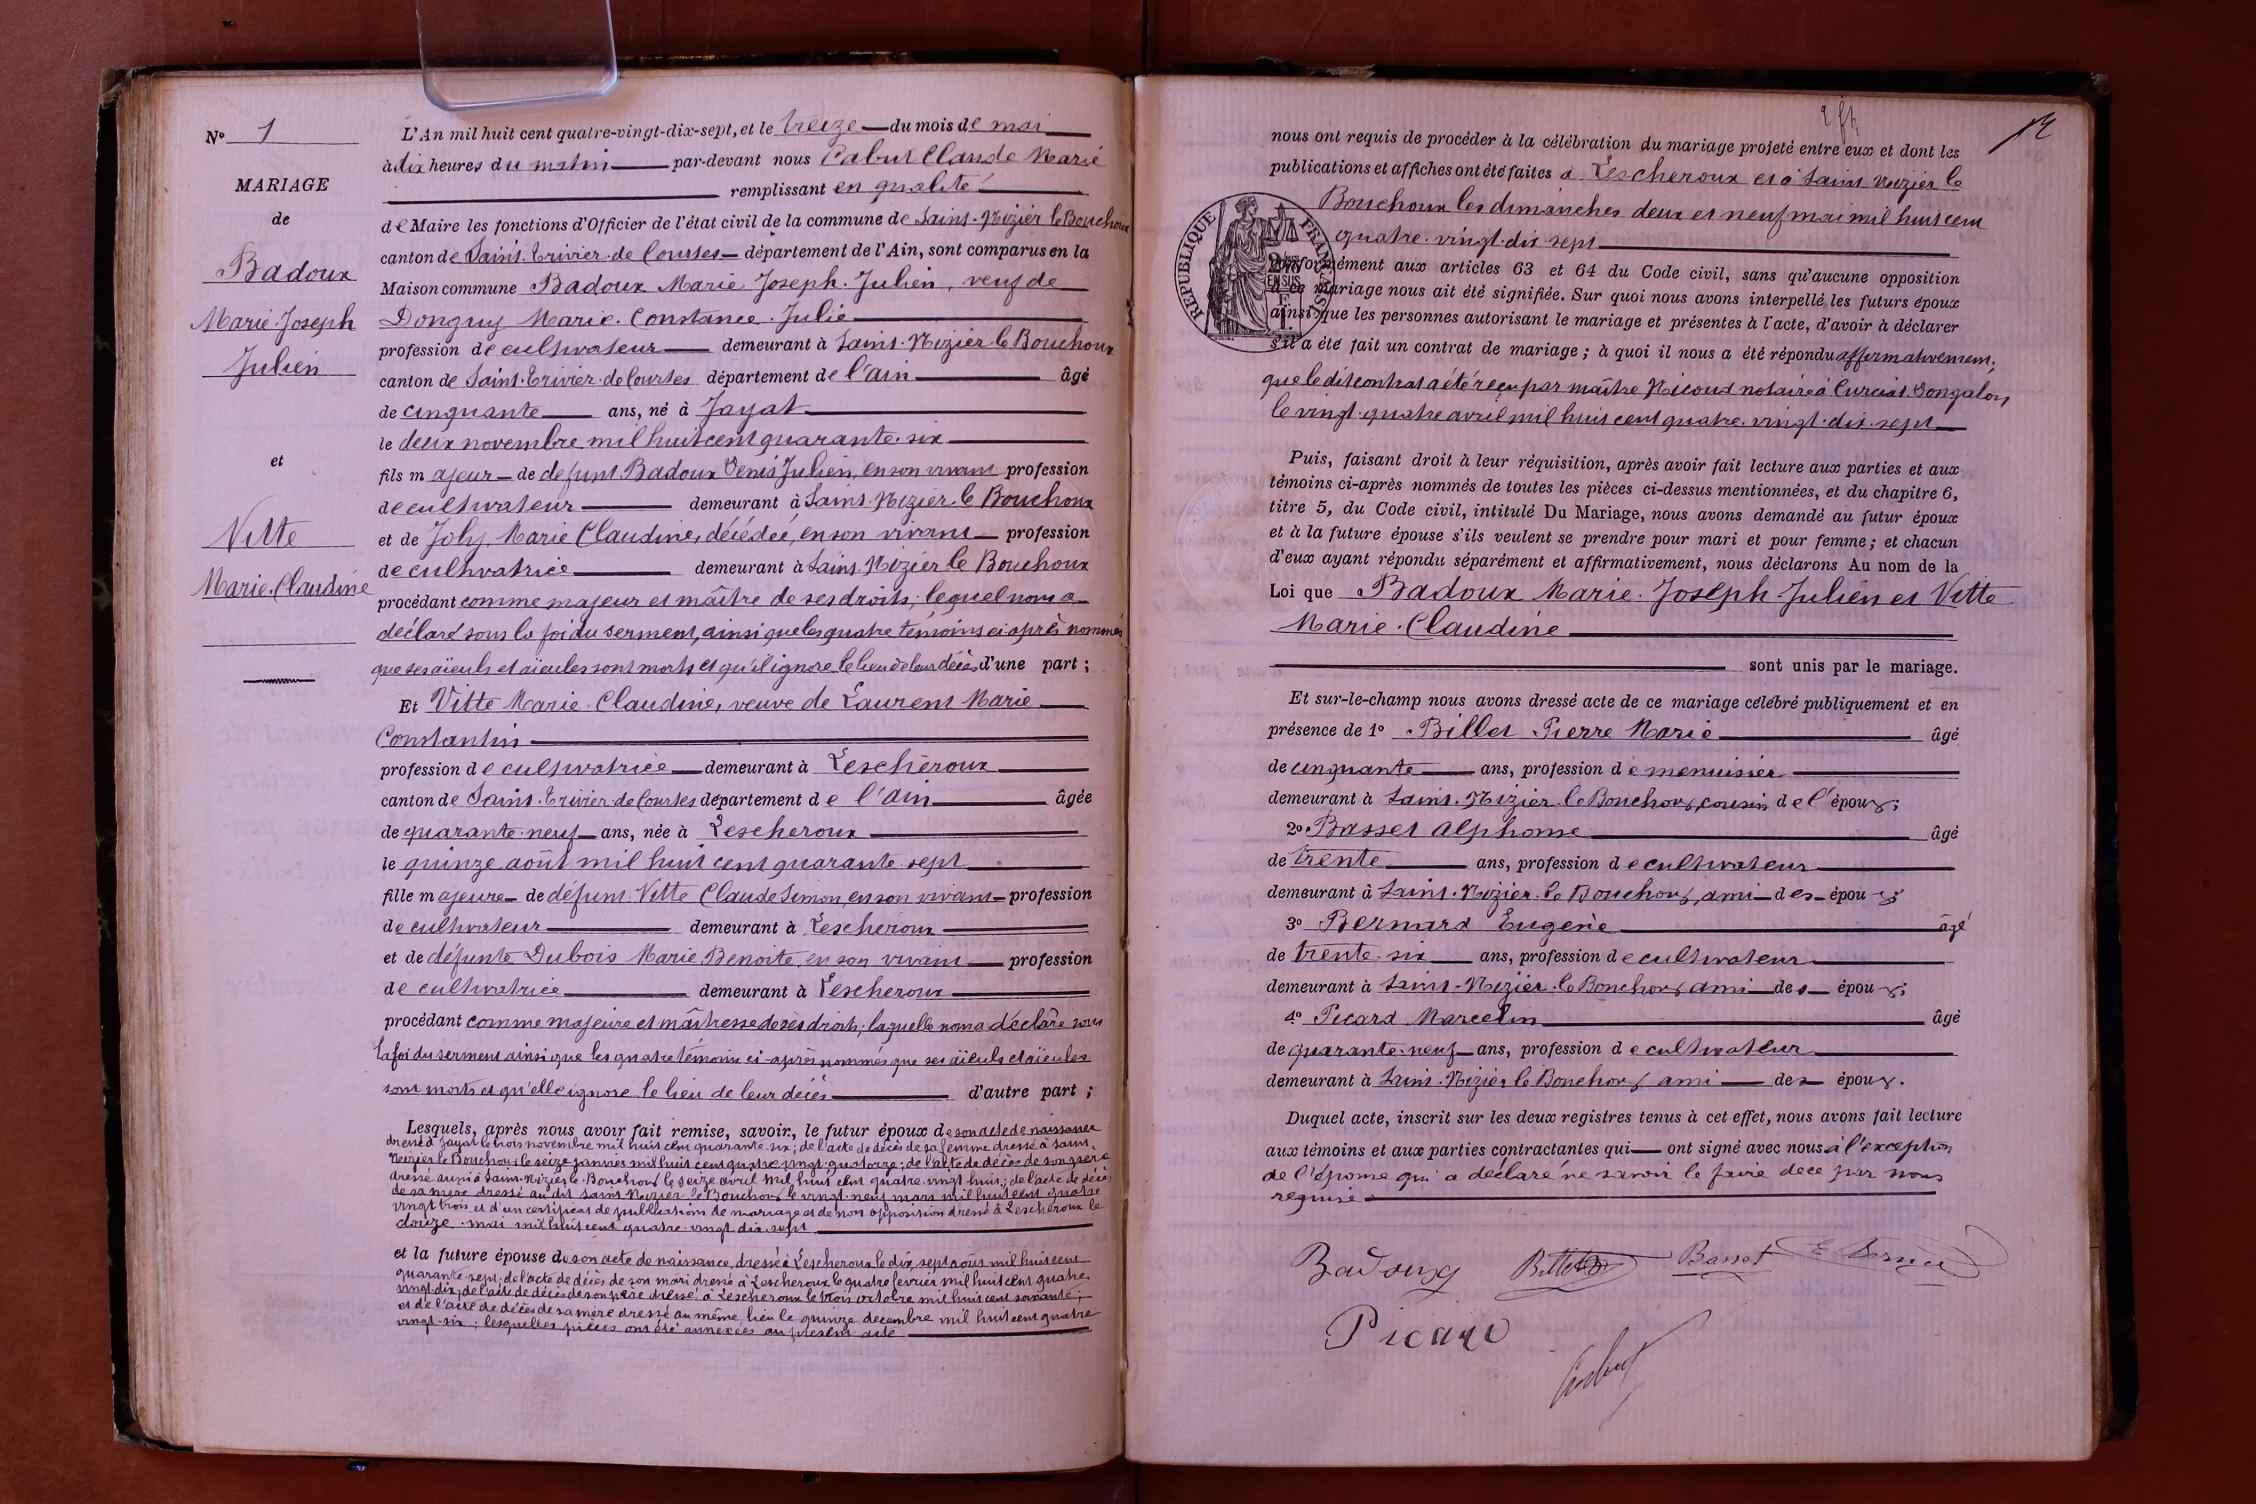 N° 1
MARIAGE
de
Badoux
Marie-Joseph
Julien
et
Vitte
Marie-Claudine
L'An mil huit cent quatre-vingt-dix-sept, et le treize du mois de mai
à dix heures du matin par-devant nous Cabut Claude Marie
remplissant en qualité
de Maire les fonctions d'Officier de l'état civil de la commune de Saint-Nizier le Bouchoux
canton de Saint-Trivier-de Courtes département de l'Ain, sont comparus en la
Maison commune Badoux Marie Joseph Julien, veuf de
Donguy Marie Constance Julie
profession de cultivateur demeurant à Saint-Nizier le Bouchoux
canton de Saint-Trivier-de Courtes département de l'ain âgé
de cinquante ans, né à Jayat
le deux novembre mil huit cent quarante-six
fils majeur de défunt Badoux Denis Julien, en son vivant profession
de cultivateur demeurant à Saint-Nizier le Bouchoux
et de Joly Marie Claudine, décédée, en son vivant profession
de cultivatrice demeurant à Saint-Nizier le Bouchoux
procédant comme majeur et maître de ses droits, lequel nous a
déclaré sous la foi du serment, ainsi que les quatre témoins ci-après nommés
que ses aïeuls et aïeules sont morts et qu'il ignore le lieu de leur décès d'une part ;
Et Vitte Marie-Claudine, veuve de Laurent Marie
Constantin
profession de cultivatrice demeurant à Lescheroux
canton de Saint-Trivier de Courtes département de l'ain âgée
de quarante-neuf ans, née à Lescheroux
le quinze août mil huit cent quarante-sept
fille majeure de défunt Vitte Claude Simon, en son vivant profession
de cultivateur demeurant à Lescheroux
et de défunte Dubois Marie Benoite, en son vivant profession
de cultivatrice demeurant à Lescheroux
procédant comme majeure et maîtresse de ses droits ; laquelle nous a déclaré sous
la foi du serment ainsi que les quatre témoins ci-après nommés que ses aïeuls et aïeules
sont morts et qu'elle ignore le lieu de leur décès d'autre part ;
Lesquels, après nous avoir fait remise, savoir, le futur époux de son acte de naissance
dressé à Jayat le trois novembre mil huit cent quarante-six ; de l'acte de décès de sa femme dressé à Saint-
Nizier le Bouchoux le seize janvier mil huit cent quatre vingt quatorze ; de l'acte de décès de son père
dressé aussi à Saint-Nizier le Bouchoux le seize avril mil huit cent quatre-vingt huit ; de l'acte de décès
de sa mère dressé au dit Saint Nizier le Bouchoux le vingt-neuf mars mil huit cent quatre
vingt trois et d'un certificat de publications de mariage et de non opposition dressé à Lescheroux le
douze mai mil huit cent quatre-vingt dix-sept
et la future épouse de son acte de naissance dressé à Lescheroux le dix sept août mil huit cent
quarante-sept ; de l'acte de décès de son mari dressé à Lescheroux le quatre février mil huit cent quatre
vingt-dix ; de l'acte de décès de son père dressé à Lescheroux le trois octobre mil huit cent soixante ;
et de l'acte de décès de sa mère dressé au même lieu le quinze decembre mil huit cent quatre
vingt-six ; lesquelles pièces ont été annexées au présent acte
12
nous ont requis de procéder à la célébration du mariage projeté entre eux et dont les
publications et affiches ont été faites à Lescheroux et à Saint Nizier le
Bouchoux les dimanches deux et neuf mai mil huit cent
quatre-vingt-dix sept
RÉPUBLIQUE FRANÇAISE
EN SUS
conformément aux articles 63 et 64 du Code civil, sans qu'aucune opposition
à ce mariage nous ait été signifiée. Sur quoi nous avons interpellé les futurs époux
ainsi que les personnes autorisant le mariage et présentes à l'acte, d'avoir à déclarer
s'il a été fait un contrat de mariage ; à quoi il nous a été répondu affirmativement,
que le dit contrat a été reçu par maître Nicoud notaire à Curciat Dongalon
le vingt-quatre avril mil huit cent quatre-vingt-dix-sept
Puis, faisant droit à leur réquisition, après avoir fait lecture aux parties et aux
témoins ci-après nommés de toutes les pièces ci-dessus mentionnées, et du chapitre 6,
titre 5, du Code civil, intitulé Du Mariage, nous avons demandé au futur époux
et à la future épouse s'ils veulent se prendre pour mari et pour femme ; et chacun
d'eux ayant répondu séparément et affirmativement, nous déclarons Au nom de la
Loi que Badoux Marie-Joseph Julien et Vitte
Marie-Claudine
sont unis par le mariage.
Et sur-le-champ nous avons dressé acte de ce mariage célébré publiquement et en
présence de 1° Billet Pierre Marie âgé
de cinquante ans, profession de menuisier
demeurant à Saint-Nizier le Bouchoux, cousin de l'époux ;
2° Basset Alphonse âgé
de trente ans, profession de cultivateur
demeurant à Saint-Nizier le Bouchoux, ami des époux ;
3° Bernard Eugène âgé
de trente-six ans, profession de cultivateur
demeurant à Saint-Nizier le Bouchoux ami des époux ;
4° Picard Marcelin âgé
de quarante-neuf ans, profession de cultivateur
demeurant à Saint-Nizier le Bouchoux ami des époux.
Duquel acte, inscrit sur les deux registres tenus à cet effet, nous avons fait lecture
aux témoins et aux parties contractantes qui ont signé avec nous à l'exception
de l'épouse qui a déclaré ne savoir le faire de ce par nous
requise
Badoux Billet Basset E Bernard
Picard
Cabut